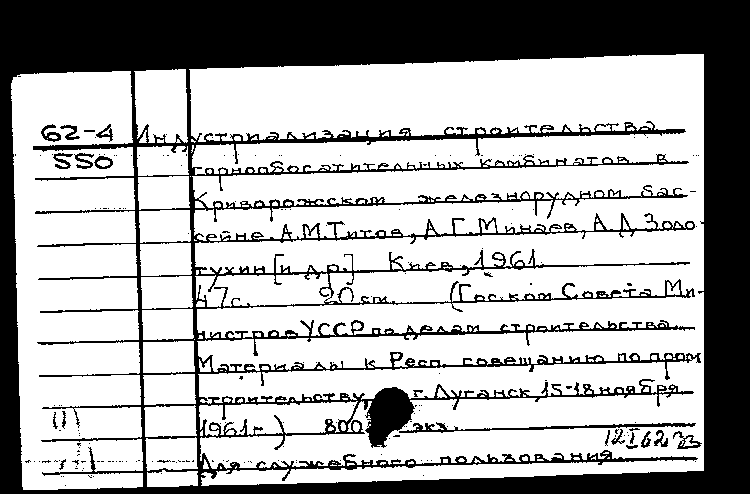 62-4 Индустриализация строительства
550 горнообогатительных комбинатов в
Криворожском железнорудном бас-
сейне. А.М.Титов, А.Г.Минаев, А.Д.Золо-
тухин [и др.] Киев, 1961.
47с. 20 см. (Гос.ком Совета Ми-
нистров УССР по делам строительства.
Материалы к Респ. совещанию по пром
строительству, г. Луганск, 15-18 ноября
1961г.) 800 экз.
12 I 62
Для служебного пользования.